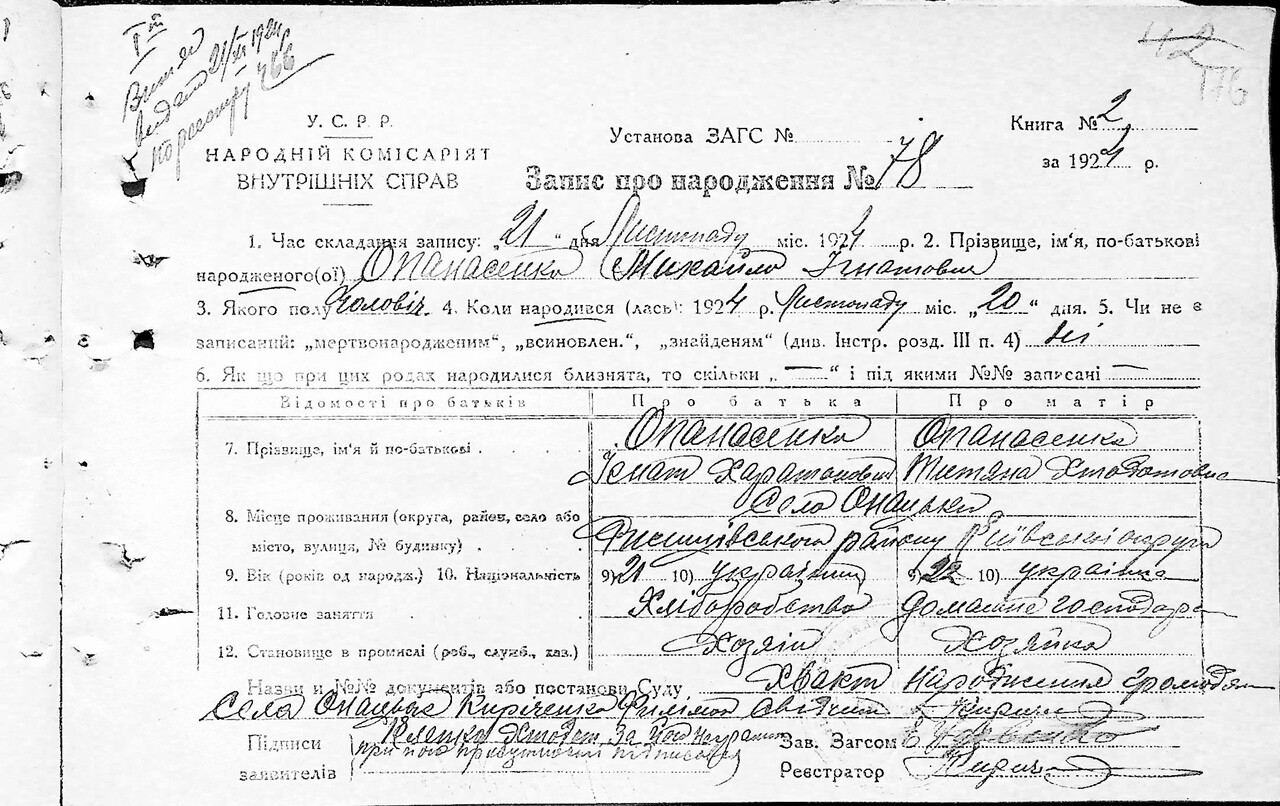 Iой
Витяг
видано 21/XI 1924
по реестру 466
42
176
У. С. Р. Р.
НАРОДНІЙ КОМІСАРІЯТ
ВНУТРІШНІХ СПРАВ
Установа ЗАГС №
Книга № 2
за 1924 р.
Запис про народження № 78
1. Час складання запису: „21" дня Листопаду міс. 1924 р. 2. Прізвище, ім'я, по-батькові
народженого(ої) Опанасенко Михайло Ігнатович
3. Якого полу Чоловіч. 4. Коли народився (лась): 1924 р. Листопаду міс. „20" дня. 5. Чи не є
записаний: „мертвонародженим", „всиновлен.", „знайденям" (див. Інстр. розд. III п. 4) ні
6. Як що при цих родах народилися близнята, то скільки „—" і під якими №№ записані —
Відомості про батьків Про батька Про матір
7. Прізвище, ім'я й по-батькові Опанасенко Опанасенко
Ігнат Харатонович Титяна Хтодотовна
8. Місце проживання (округа, район, село або Село Онацьки
місто, вулиця, № будинку) району Київської округи
9. Вік (років од народж.) 10. Національність 9) 21 10) українец 9) 22 10) українка
11. Головне заняття Хліборобство домашне господар
12. Становище в промислі (роб., служб., хаз.) Хозяін Хозяйка
Назви и №№ документів або постанови Суду Хвакт народження громадян
села Онацьке Кириченко
Підписи
заявителів
при його присутности підписався
Зав. Загсом
Реєстратор